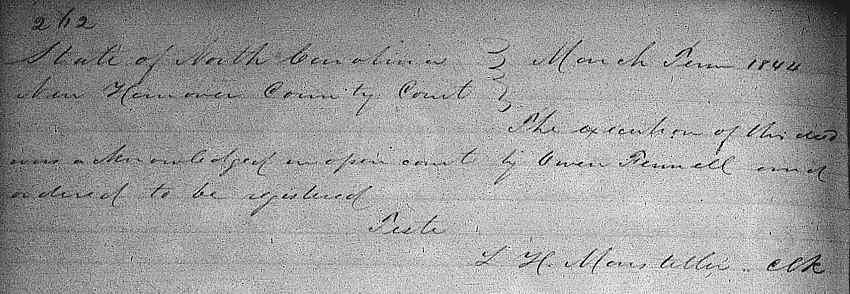 262
State of North Carolina } March Term 1844
New Hanover County Court }
The execution of this deed
was acknowledged in open court by Owen Fennell and
ordered to be registered
Teste
L H. Marsteller Clk